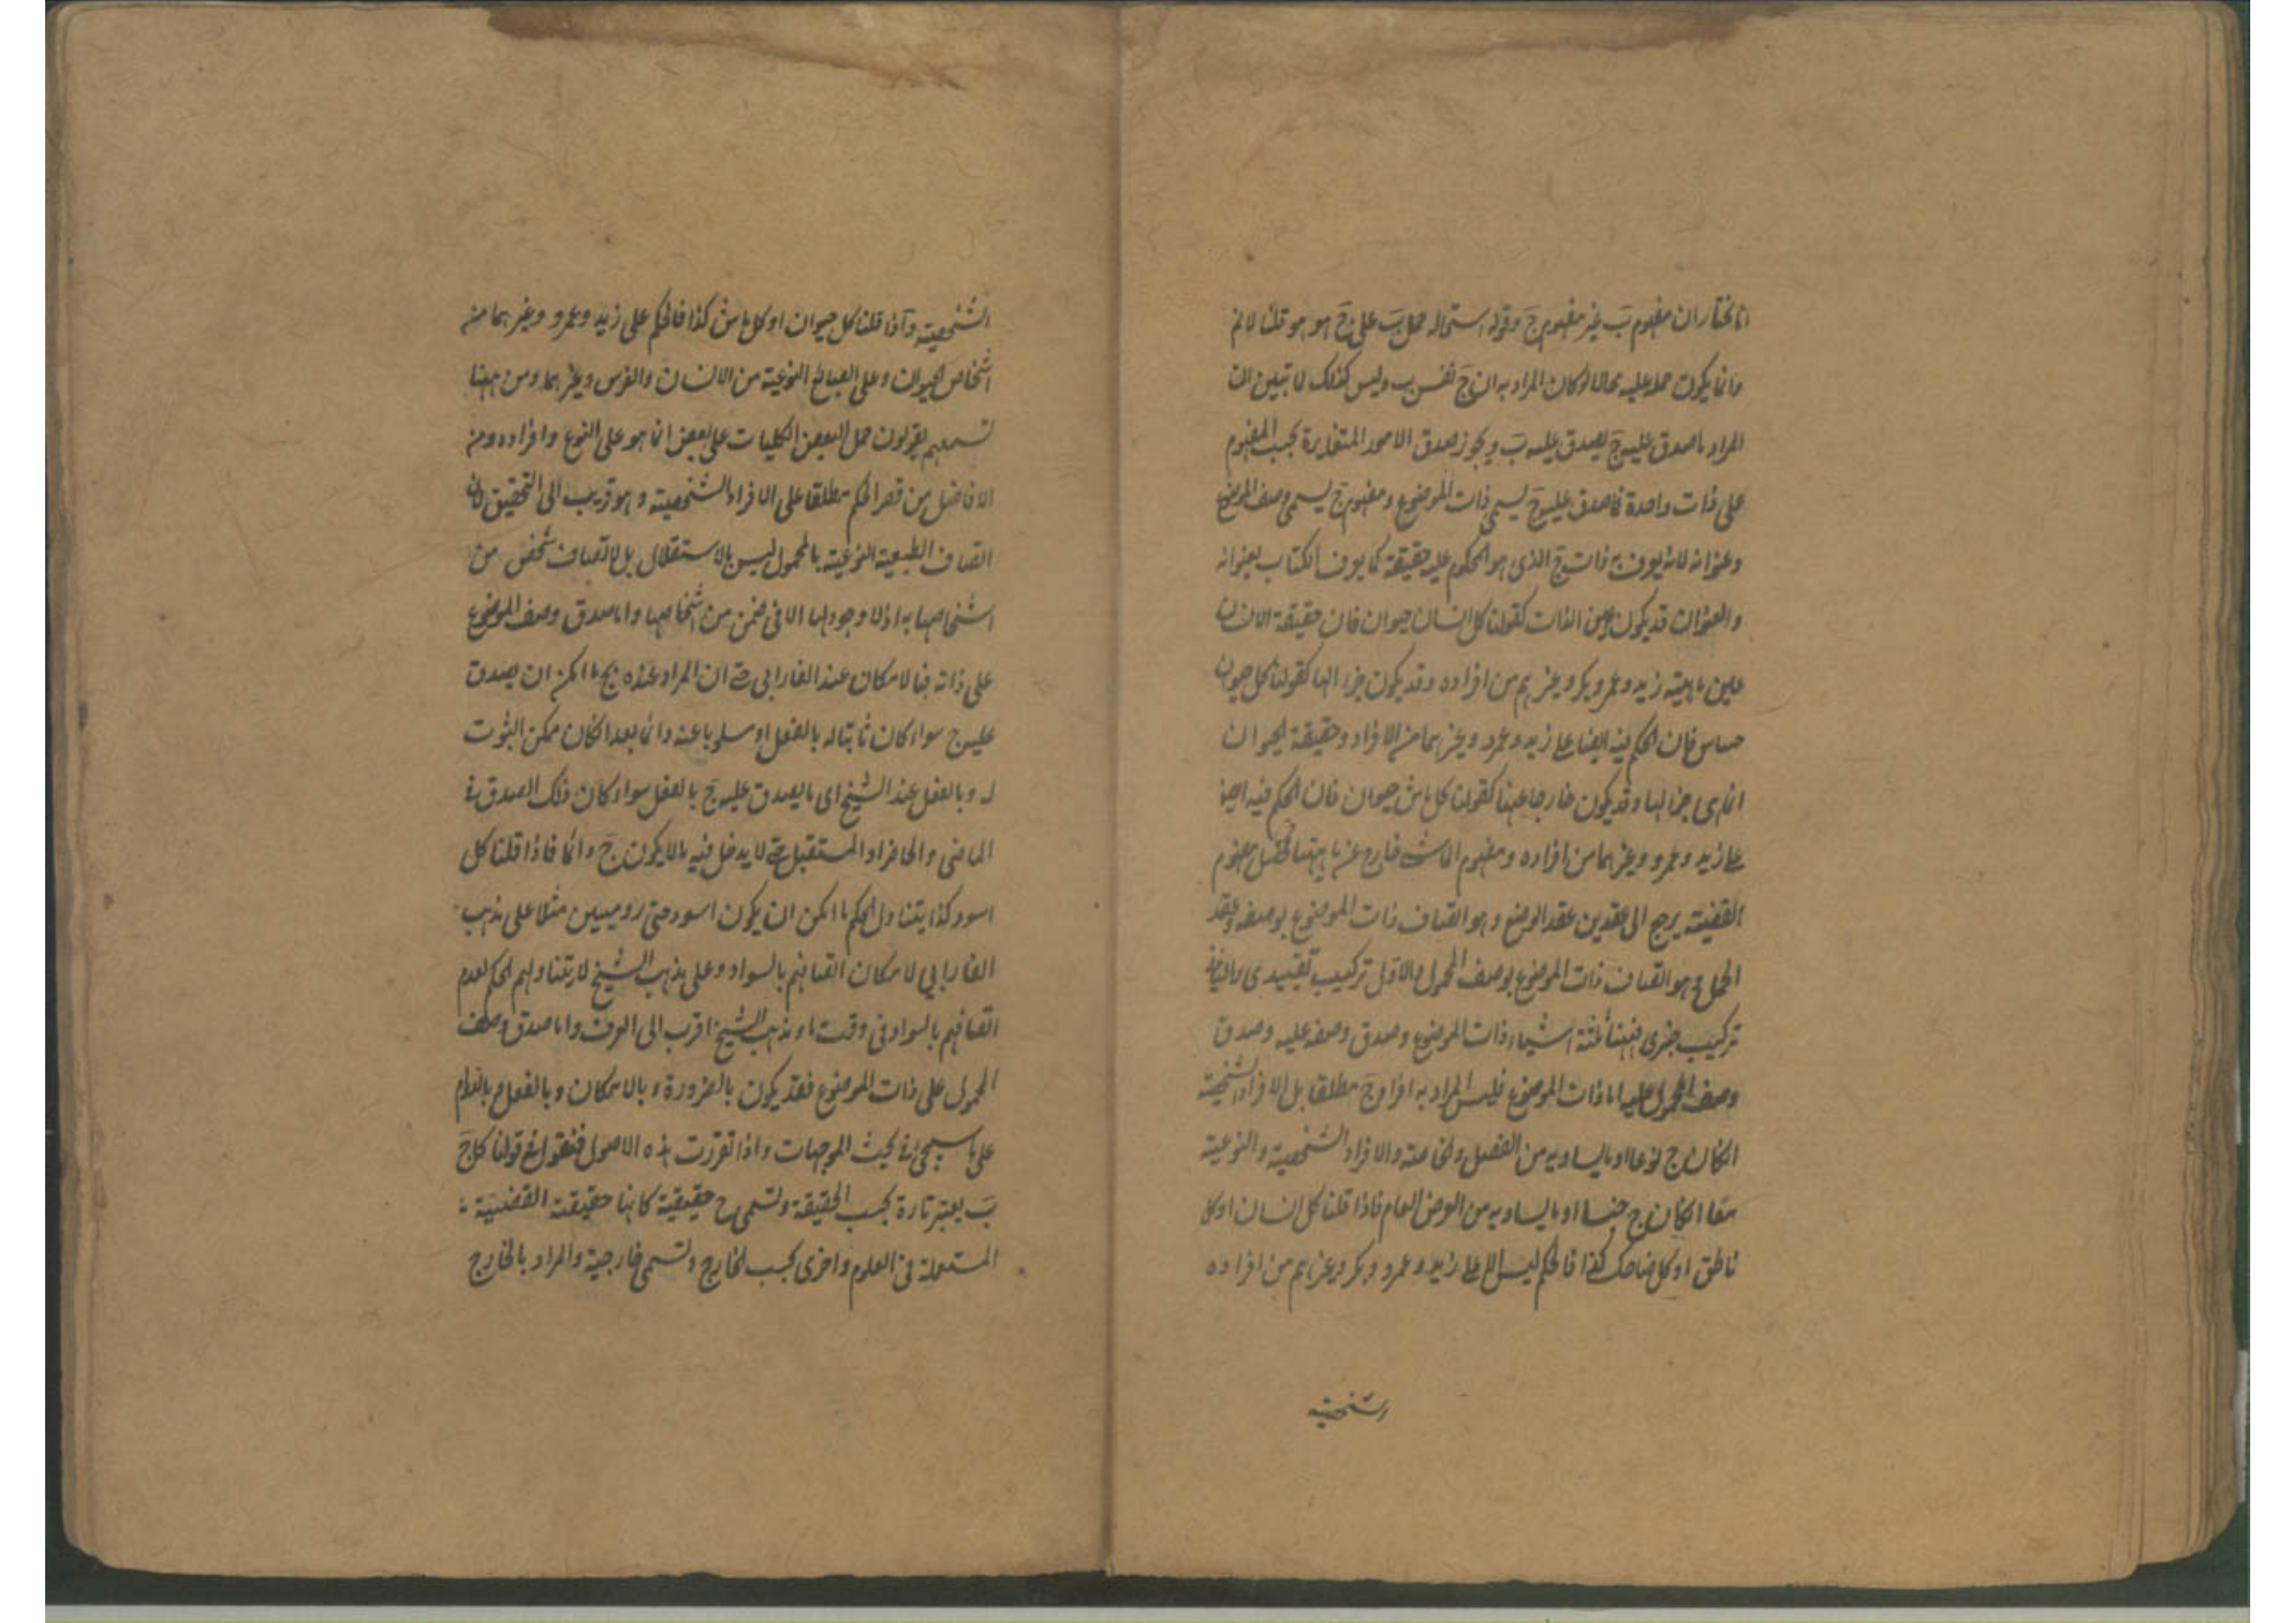 انا نختار ان مفهوم بَ غير مفهوم جَ وقوله استحاله حمل بَ على جَ هو هو قلنا لانم
وانما يكون حمله عليه محالا لو كان المراد به ان جَ نفس ب وليس كذلك لما تبين ان
المراد ما صدق عليه جَ يصدق عليه بَ ويجوز صدق الامور المتغايرة بحسب المفهوم
على ذات واحدة فما صدق عليه جَ يسمى ذات الموضوع ومفهوم جَ يسمى وصف الموضوع
وعنوانه لانه يعرف به ذات ج الذى هو المحكوم عليه حقيقة كما يعرف الكتاب بعنوانه
والعنوان قد يكون عين الذات كقولنا كل انسان حيوان فان حقيقة الانسان
عين ماهية زيد وعمرو وبكر وغيرهم من افراده وقد يكون جزء الها كقولنا كل حيوان
حساس فان الحكم فيه ايضا على زيد وعمرو وغيرهما من الافراد وحقيقة الحيوان
انما هى جزء لها وقد يكون خارجا عنها كقولنا كل ماش حيوان فان الحكم فيه ايضا
على زيد وعمرو وغيرهما من افراده ومفهوم الماشى خارج عن ماهيتها فمحصل مفهوم
القضية يرجع الى عقدين عقد الوضع وهو اتصاف ذات الموضوع بوصفه وعقد
الحمل وهو اتصاف ذات الموضوع بوصف المحمول والاول تركيب تقييدى والثانى
تركيب خبرى فههنا ثلثة اشياء ذات الموضوع وصدق وصفه عليه وصدق
وصف المحمول عليه اما ذات الموضوع فليس المراد به افراد جَ مطلقا بل الافراد الشخصية
انكان ج نوعا او ما يساويه من الفصل والخاصة والافراد الشخصية والنوعية
معا انكان ج جنسا او ما يساويه من العرض العام فاذا قلنا كل انسان او كل
ناطق او كل ضاحك كذا فالحكم ليس الا على زيد وعمرو وبكر وغيرهم من افراده
الشخصية
الشخصية وآذا قلنا كل حيوان او كل ماش كذا فالحكم على زيد وعمرو وغيرهما من
اشخاص الحيوان وعلى الطبائع النوعية من الانسان والفرس وغيرهما ومن ههنا
تسمعهم يقولون حمل البعض الكليات على بعض انما هو على النوع وافراده ومن
الافاضل من قصر الحكم مطلقا على الافراد الشخصية وهو قريب الى التحقيق لان
اتصاف الطبيعة النوعية بالمحمول ليس بالاستقلال بل لاتصاف شخص من
اشخاصها به اذ لا وجود لها الا فى ضمن من اشخاصها واما صدق وصف الموضوع
على ذاته فبالامكان عند الفارابى حتى ان المراد عنده بج ما امكن ان يصدق
عليه ج سواء كان ثابتا له بالفعل او مسلوبا عنه دائما بعد انكان ممكن الثبوت
له وبالفعل عند الشيخ اى ما يصدق عليه جَ بالفعل سواء كان ذلك الصدق فى
الماضى والحاضر او المستقبل حتى لا يدخل فيه ما لا يكون جَ دائما فاذا قلنا كل
اسود كذا يتناول الحكم ما امكن ان يكون اسود حتى روميين مثلا على مذهب
الفارابى لامكان اتصافهم بالسواد وعلى مذهب الشيخ لا يتناولهم الحكم لعدم
اتصافهم بالسواد فى وقت ما ومذهب الشيخ اقرب الى العرف واما صدق وصف
المحمول على ذات الموضوع فقد يكون بالضرورة وبالامكان وبالفعل وبالدوام
على ما سيجئ فى بحث الموجهات واذا تقررت هذه الاصول فنقول فى قولنا كل جَ
بَ يعتبر تارة بحسب الحقيقة وتسمى ح حقيقية كانها حقيقة القضية
المستعملة فى العلوم واخرى بحسب الخارج وتسمى خارجية والمراد بالخارج